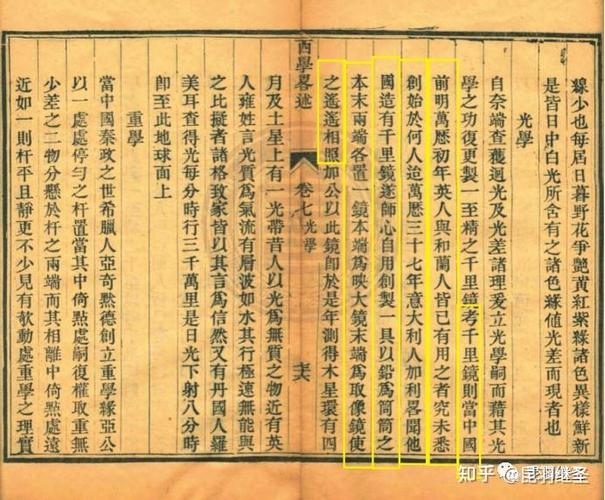 線少也每居日暮野花爭艷黃紅紫綠諸色異樣鮮新
是皆日中白光所含有之諸色緣値光差而現者也
光學
自奈端查獲迴光及光差諸理爰立光學嗣而藉其光
學之功復更製一至精之千里鏡考千里鏡則當中國
前明萬歷初年英人與和蘭人皆已有用之者究未悉
創始於何人迨萬歷三十七年意大利人加利畧聞他
國造有千里鏡遂師心自用創製一具以鉛爲筒筒之
本末兩端各置一鏡本端爲映大鏡末端爲取像鏡使
之遙遙相照加公以此鏡卽於是年測得木星環有四
西學畧述 卷七 光學
月及土星上有一光帶昔人以光爲無質之物近有英
人雍姓言光質爲氣流有層波如水其行極速無能與
之比擬者諸格致家皆以其言爲信然又有丹國人羅
美耳查得光每分時行三千萬里是日光下射八分時
卽至此地球面上
重學
當中國秦政之世希臘人亞奇黙德創立重學緣亞公
以一處處停勻之杆置當其中倚點處嗣復權取重無
少差之二物分懸於杆之兩端而其相離中倚點處遠
近如一則杆平且靜更不少見有欹動處重學之理實
知乎 @昆羽继圣